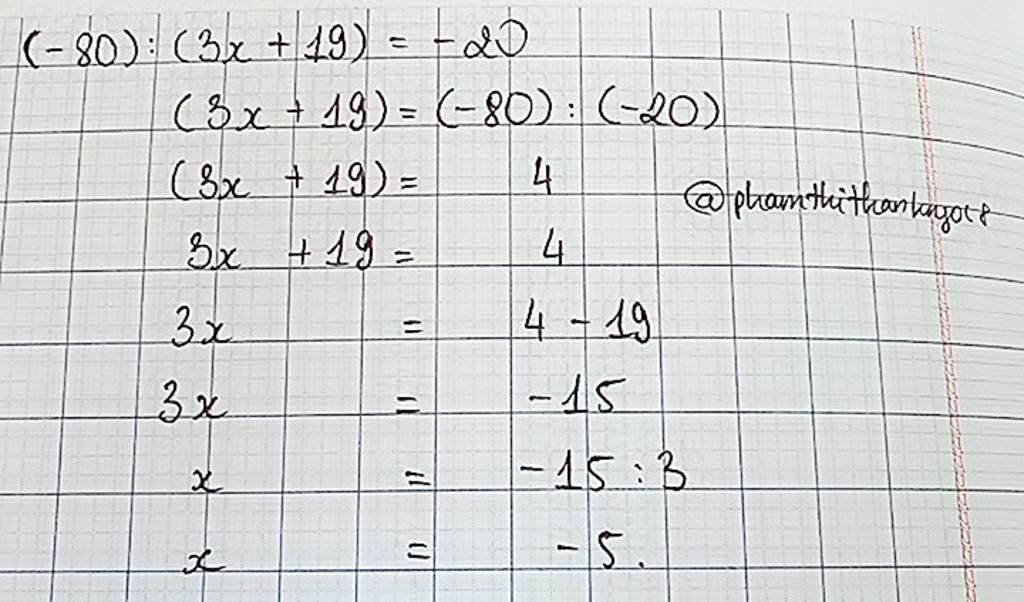 (-80) : (3x + 19) = -20
(3x + 19) = (-80) : (-20)
(3x + 19) = 4
@phamthithanhngoc8
3x + 19 = 4
3x = 4 - 19
3x = -15
x = -15 : 3
x = -5.